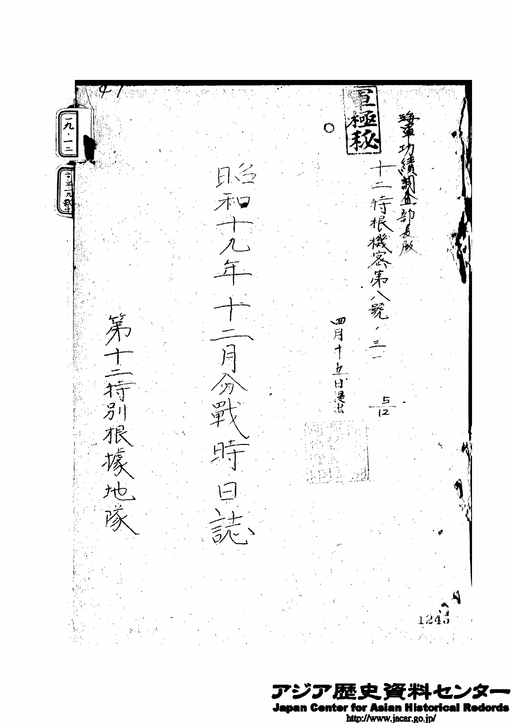 海軍功績調査部長殿
軍極秘
十二特根機密第八號ノ三一
5/12
四月十五日提出
昭和十九年十二月分戰時日誌
第十二特別根據地隊
一九・一二
1245
アジア歴史資料センター
Japan Center for Asian Historical Redords
http://www.jacar.go.jp/